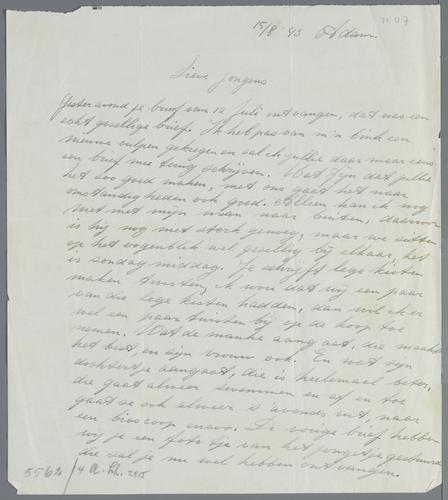 15/8 '43 Adam.
7107
Lieve Jongens
Gisteravond je brief van 12 Juli ontvangen, dat was een
echt gezellige brief. Ik heb pas van m'n kind een
nieuwe vulpen gekregen en zal ik jullie daar maar eens
een brief mee terug schrijven. Wat fijn dat jullie
het zoo goed maken, met ons gaat het naar
omstandigheden ook goed. Alleen kan ik nog
niet met mijn man naar buiten, daarvoor
is hij nog niet sterk genoeg, maar we zitten
op het oogenblik wel gezellig bij elkaar, het
is zondag middag. Je schrijft lege kisten
maken twisten, ik wou dat wij een paar
van die lege kisten hadden, dan wil ik er
wel een paar twisten bij op de koop toe
nemen. Wat de manke aangaat, die maakt
het best, en zijn vrouw ook. En wat zijn
dochtertje aangaat, die is heelemaal beter,
die gaat alweer zwemmen en af en toe
gaat ze ook alweer 's avonds uit, naar
een bioscoop enzoo. In de vorige brief hebben
wij je een fotootje van het jongetje gestuurd
die zal je nu wel hebben ontvangen.
5562